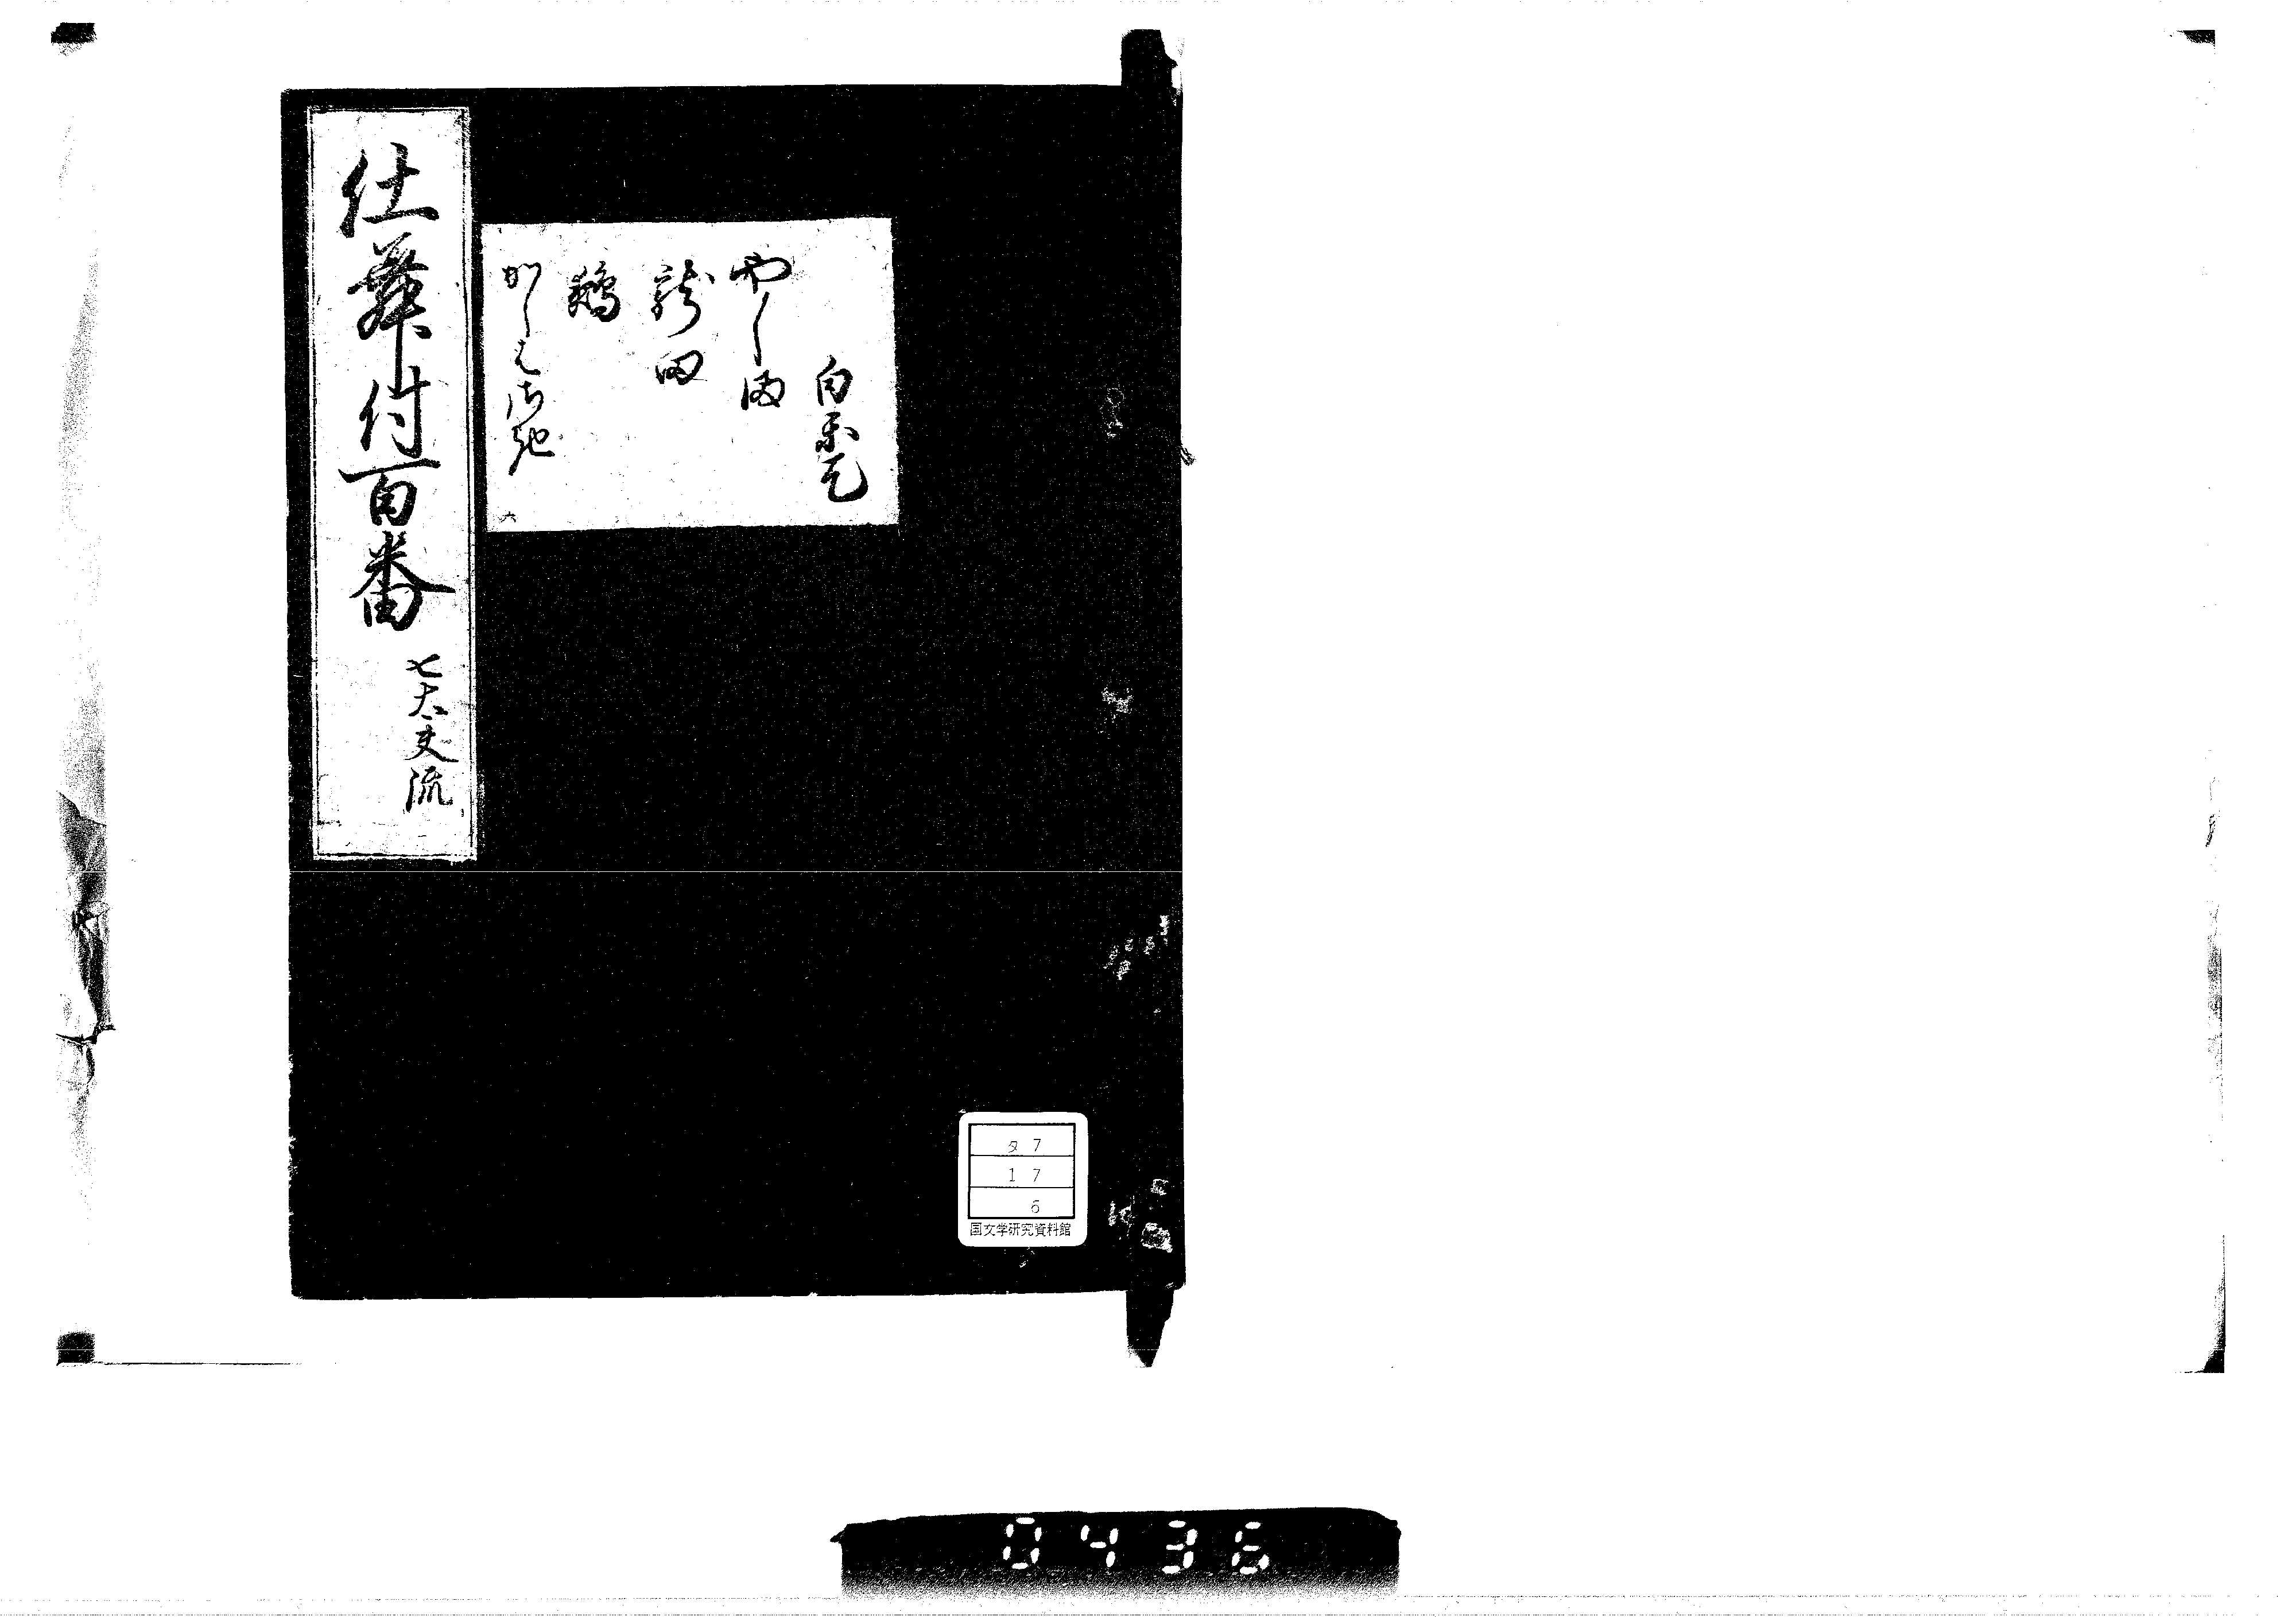 白楽天
やしま
龍田
かしは
六
仕舞付百番 七太夫流
タ7
17
6
国文学研究資料館
0436